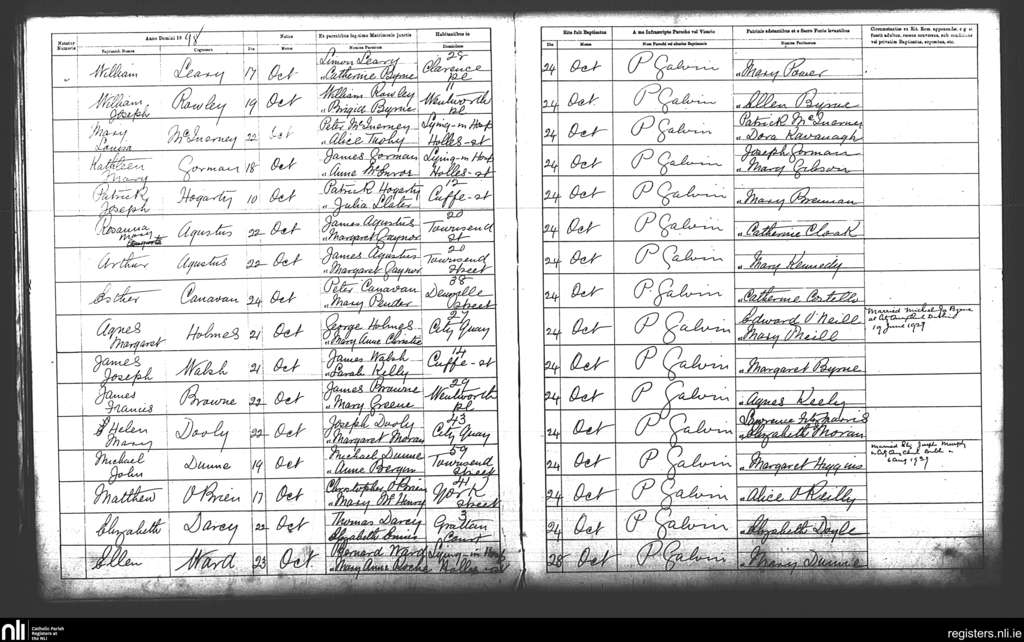 Anno Domini 1898
Natus
Ex parentibus legitimo Matrimonio junctis
Habitantibus in
Baptizati Nomen
Cognomen
Die
Mense
Nomina Parentum
Domicilium
Rite fuit Baptizatus
A me Infrascripto Parocho vel Vicario
Patrinis adstantibus et a Sacro Fonte levantibus
Die
Mense
Nomina Patrinorum
William Leary 17 Oct Simon Leary
" Catherine Byrne
28
Clarence
pl
24 Oct P Galvin " Mary Power
William
Joseph
Rowley 19 Oct William Rowley
" Brigid Byrne
11
Wentworth
pl
24 Oct P Galvin " Ellen Byrne
Mary
Louisa
McInerney 22 Oct Peter McInerney
" Alice
Lying-in Hosp
Holles-st
24 Oct P Galvin Patrick McInerney
" Dora Kavanagh
Kathleen
Mary
Gorman 18 Oct James Gorman
" Anne
Lying-in Hosp
Holles-st
24 Oct P Galvin Joseph Gorman
" Mary Gibson
Patrick
Joseph
Hogarty 10 Oct Patrick Hogarty
" Julia Slater
12
Cuffe-st
24 Oct P Galvin " Mary Brennan
Rosanna
Mary
Agustus 22 Oct James Agustus
" Margaret Gaynor
20
Townsend
st
24 Oct P Galvin " Catherine Cloak
Arthur Agustus 22 Oct James Agustus
" Margaret Gaynor
20
Townsend
Street
24 Oct P Galvin " Mary Kennedy
Esther Canavan 24 Oct Peter Canavan
" Mary Pender
38
Denzille
Street
24 Oct P Galvin " Catherine Costello
Agnes
Margaret
Holmes 21 Oct George Holmes
" Mary Anne Christie
27
City Quay
24 Oct P Galvin Edward O'Neill
" Mary
Married Michael Byrne
19 June 1929
James
Joseph
Walsh 21 Oct James Walsh
" Sarah Kelly
14
Cuffe-st
24 Oct P Galvin " Margaret Byrne
James
Francis
Browne 22 Oct James Browne
" Mary Greene
29
Wentworth
pl
24 Oct P Galvin " Agnes Keely
Helen
Mary
Dooly 22 Oct Joseph Dooly
" Margaret Moran
43
City Quay
24 Oct P Galvin Lawrence
" Elizabeth Moran
Michael
John
Dunne 19 Oct Michael Dunne
" Anne Bergin
59
Townsend
Street
24 Oct P Galvin " Margaret Higgins
Married Joseph Murphy
6 Aug 1929
Matthew O'Brien 17 Oct Christopher O'Brien
" Mary McHenry
41
York
Street
24 Oct P Galvin " Alice O'Reilly
Elizabeth Darcy 22 Oct Thomas Darcy
" Elizabeth Ennis
3
Grattan
Court
24 Oct P Galvin " Elizabeth Doyle
Ellen Ward 23 Oct Bernard Ward
" Mary Anne Roche
Lying-in Hosp
Holles-st
25 Oct P Galvin " Mary Dunne
nli
Catholic Parish
Registers at
the NLI
registers.nli.ie